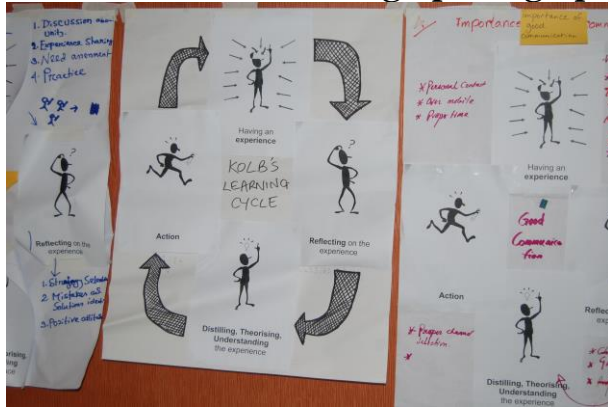 1. Discussion
unity.
2. Experience Sharing
3. Need assessment
4. Practice
?
Reflecting on the
experience
2. Mistakes as
Solution
3. Positive
Having an
experience
KOLB'S
LEARNING
CYCLE
Action
?
Reflecting on the
experience
Distilling, Theorising,
Understanding
the experience
Importance
importance of
good
communication
* Personal Contact
* Over mobile
* Proper time
Having an
experience
Good
Communica
tion
Action
* Proper channel
*
Distilling, Theorising,
Understanding
the experience